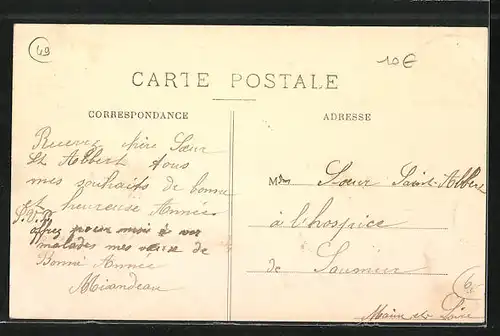 49
10€
CARTE POSTALE
CORRESPONDANCE
ADRESSE
Recevez chère Sœur
St Albert tous
mes souhaits de bonne
et heureuse Année
S.V.P.
offrez pour moi à vos
malades mes vœux de
Bonne Année
Mirandeau
Mme Sœur Saint-Albert
à l'hospice
de Saumur
Maine et Loire